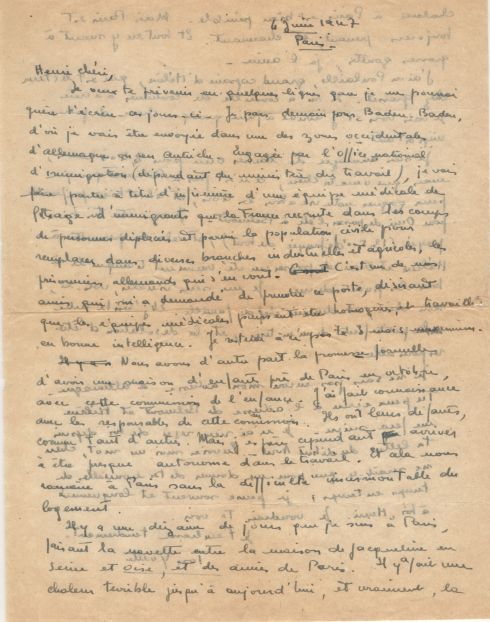 6 juin 1947
Paris.
Henri chéri,
Je veux te prévenir en quelques lignes que je ne pourrai
guère t'écrire ces jours-ci. Je pars demain pour Baden-Baden,
d'où je vais être envoyée dans une des zones occidentales
d'allemagne ou en Autriche. Engagée par l'Office national
d'immigration (dépendant du ministère du travail), je vais
faire partie à titre d'infirmière d'une équipe médicale de
filtrage d'immigrants que la France recrute dans les camps
de personnes déplacées et parmi la population civile pour
remplacer dans diverses branches industrielles et agricoles, les
prisonniers allemands qui s'en vont. C'est un de nos
amis qui m'a demandé de prendre ce poste, désirant
que les équipes médicales puissent être homogènes et travailler
en bonne intelligence. Je
Nous avons d'autre part la promesse formelle
d'avoir une maison d'enfants près de Paris en octobre,
avec cette commission de l'enfance. J'ai fait connaissance
avec les responsables de cette commission. Ils ont leurs défauts,
comme tant d'autres. Mais cependant arriver
à être presque autonome dans le travail. Et cela nous
ramène à Paris sans la difficulté insurmontable du
logement.
Il y a une dizaine de jours que je suis à Paris,
faisant la navette entre la maison de Jacqueline en
Seine et Oise, et des amies de Paris. Il y a fait une
chaleur terrible jusqu'à aujourd'hui, et vraiment, la